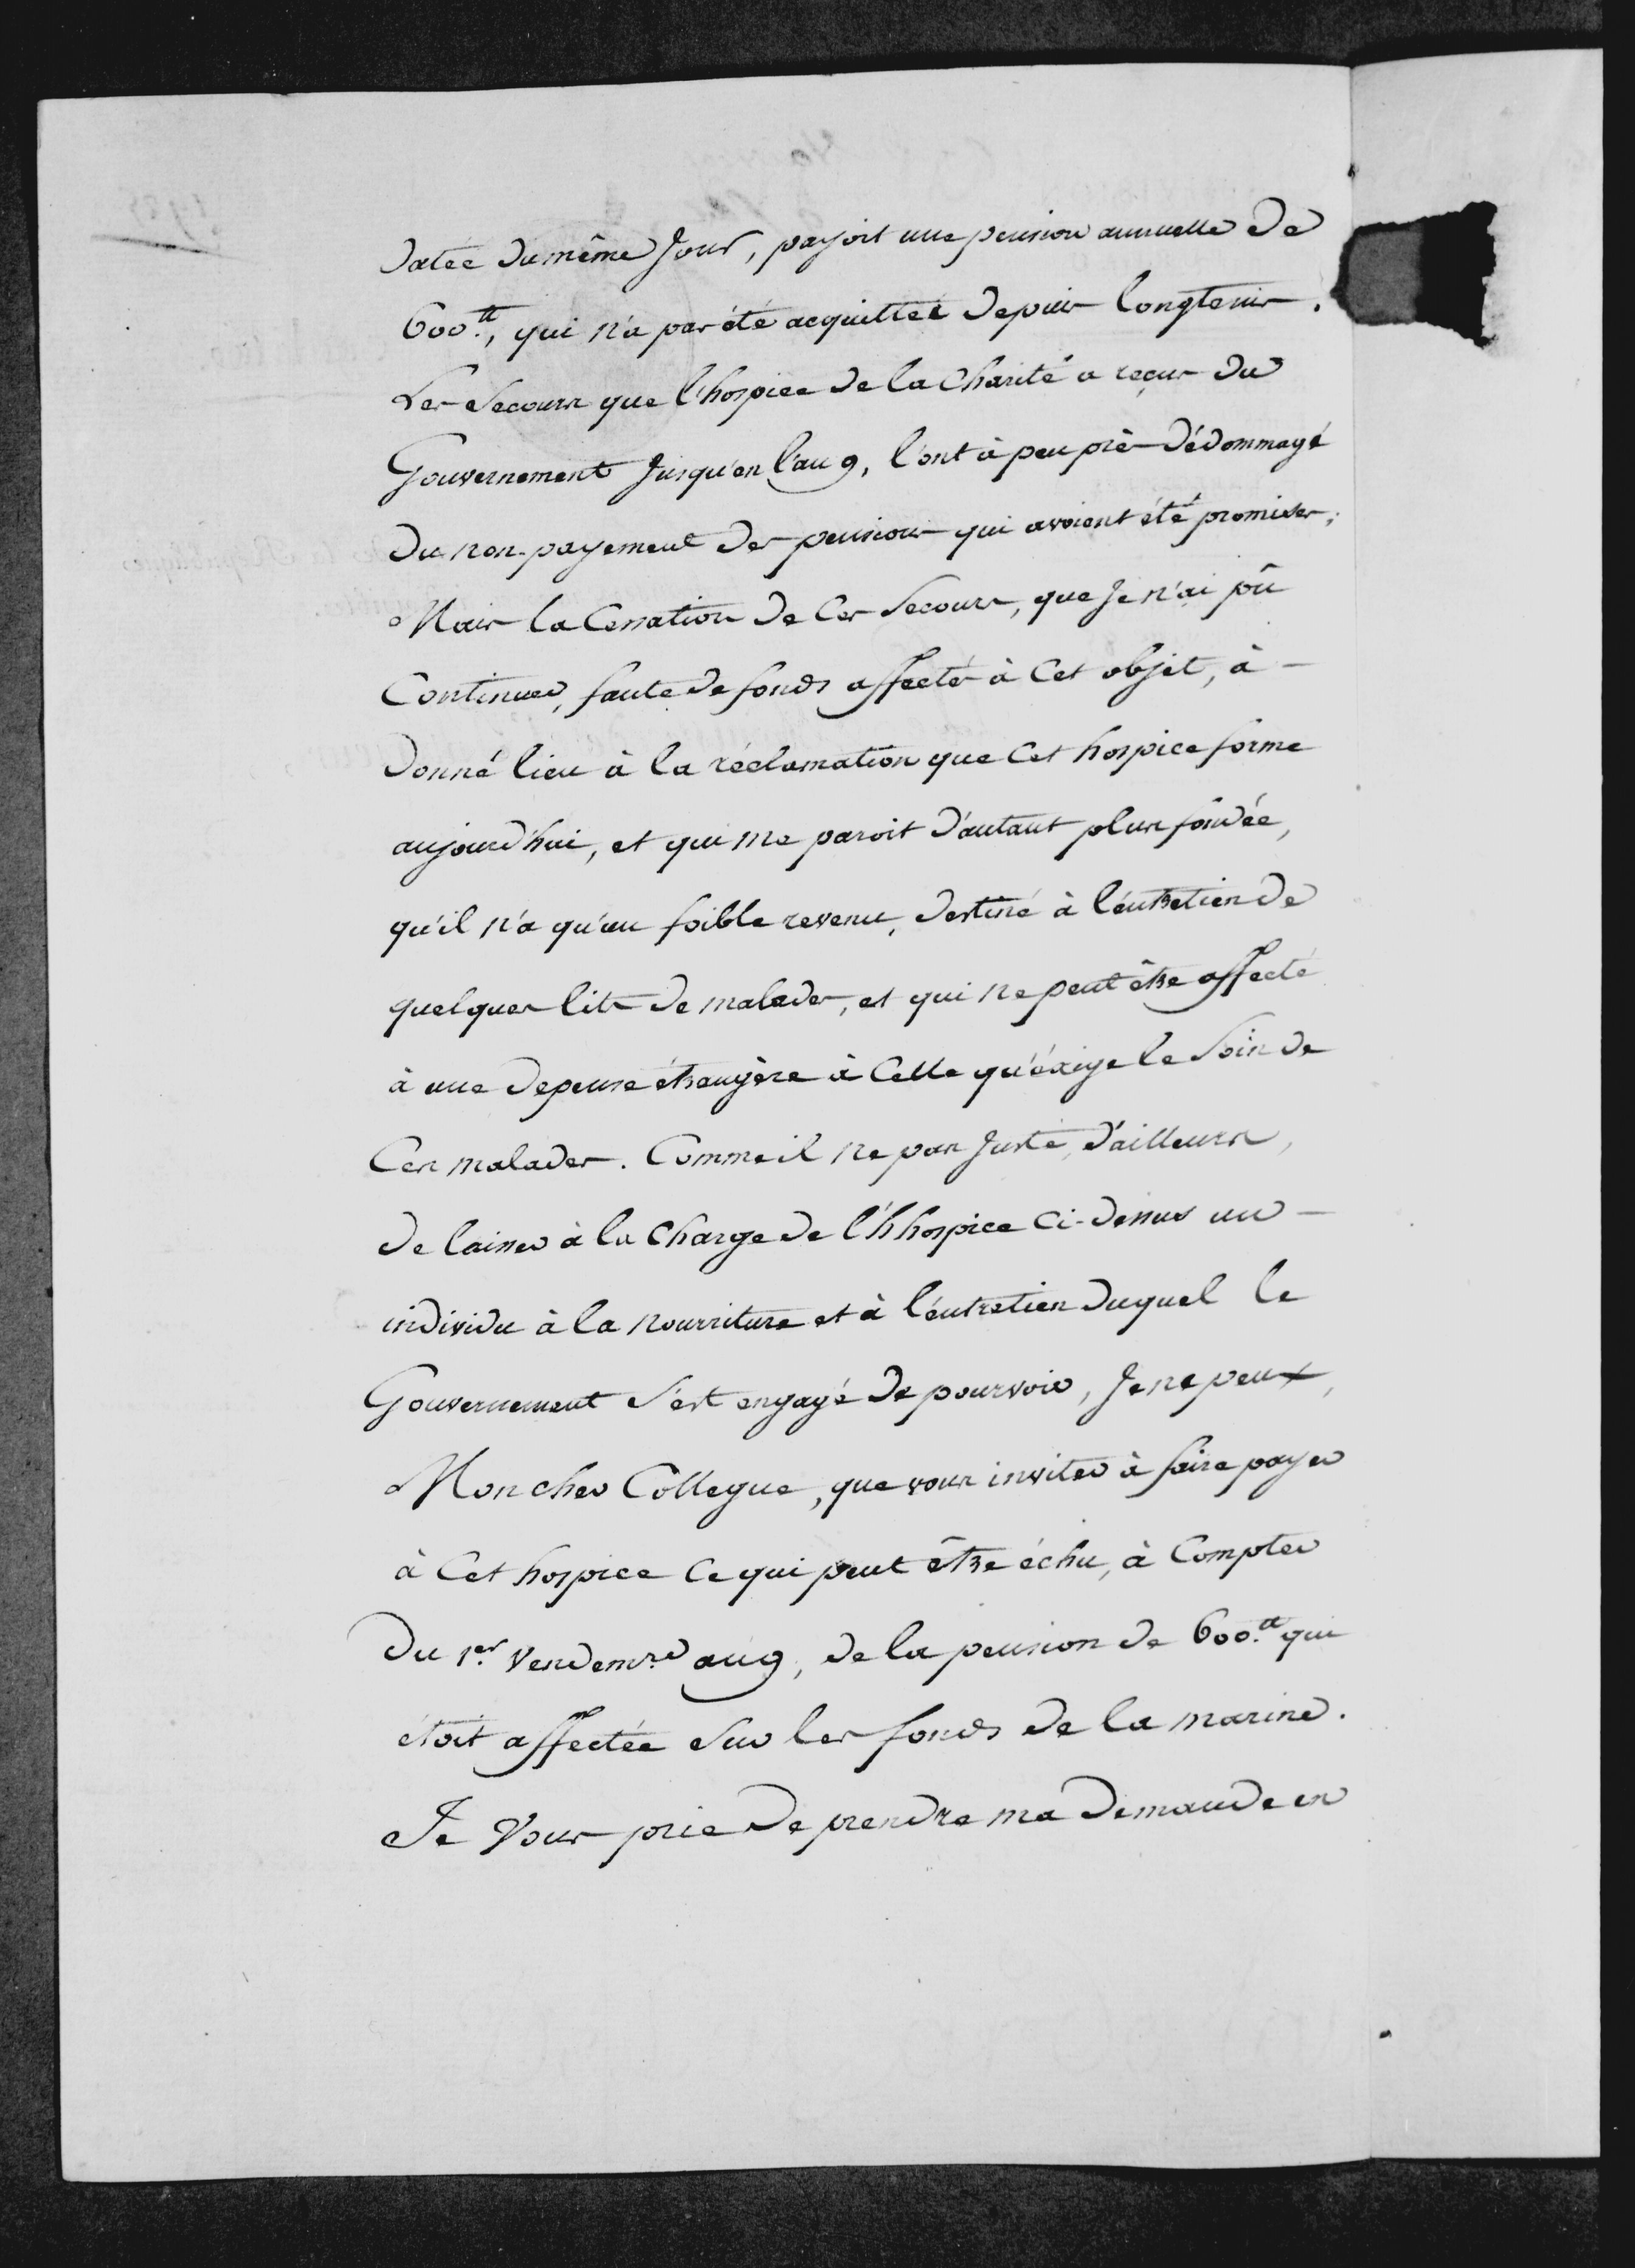 datée du même Jour, payoit une pension annuelle de
600.tt, qui n'a pas été acquittée depuis longtems.
Les Secours que l'hospice de la Charité a reçus du
Gouvernement Jusqu'en l'an 9, l'ont à peu près dédommagé
du non-payement des pensions qui avoient été promises;
Mais la Cessation de Ces Secours, que Je n'ai pû
Continuer, faute de fonds affectés à Cet objet, à -
donné lieu à la réclamation que Cet hospice forme
aujourd'hui, et qui me paroit d'autant plus fondée,
qu'il n'a qu'un foible revenu, destiné à l'entretien de
quelques lits de malades, et qui ne peut être affecté
à une depense étrangère à Celle qu'éxige le Soin de
Ces malades. Comme il ne pas Juste, d'ailleurs,
de laisser à la Charge de l'hhospice Ci-dessus un -
individu à la nourriture et à l'entretien duquel le
Gouvernement s'est engagé de pourvoir, Je ne peux,
Mon cher Collegue, que vous inviter à faire payer
à Cet hospice Ce qui peut être échu, à Compter
du 1.er Vendem.re an 9, de la pension de 600.tt qui
étoit affectée Sur les fonds de la marine.
Je Vous prie de prendre ma demande en